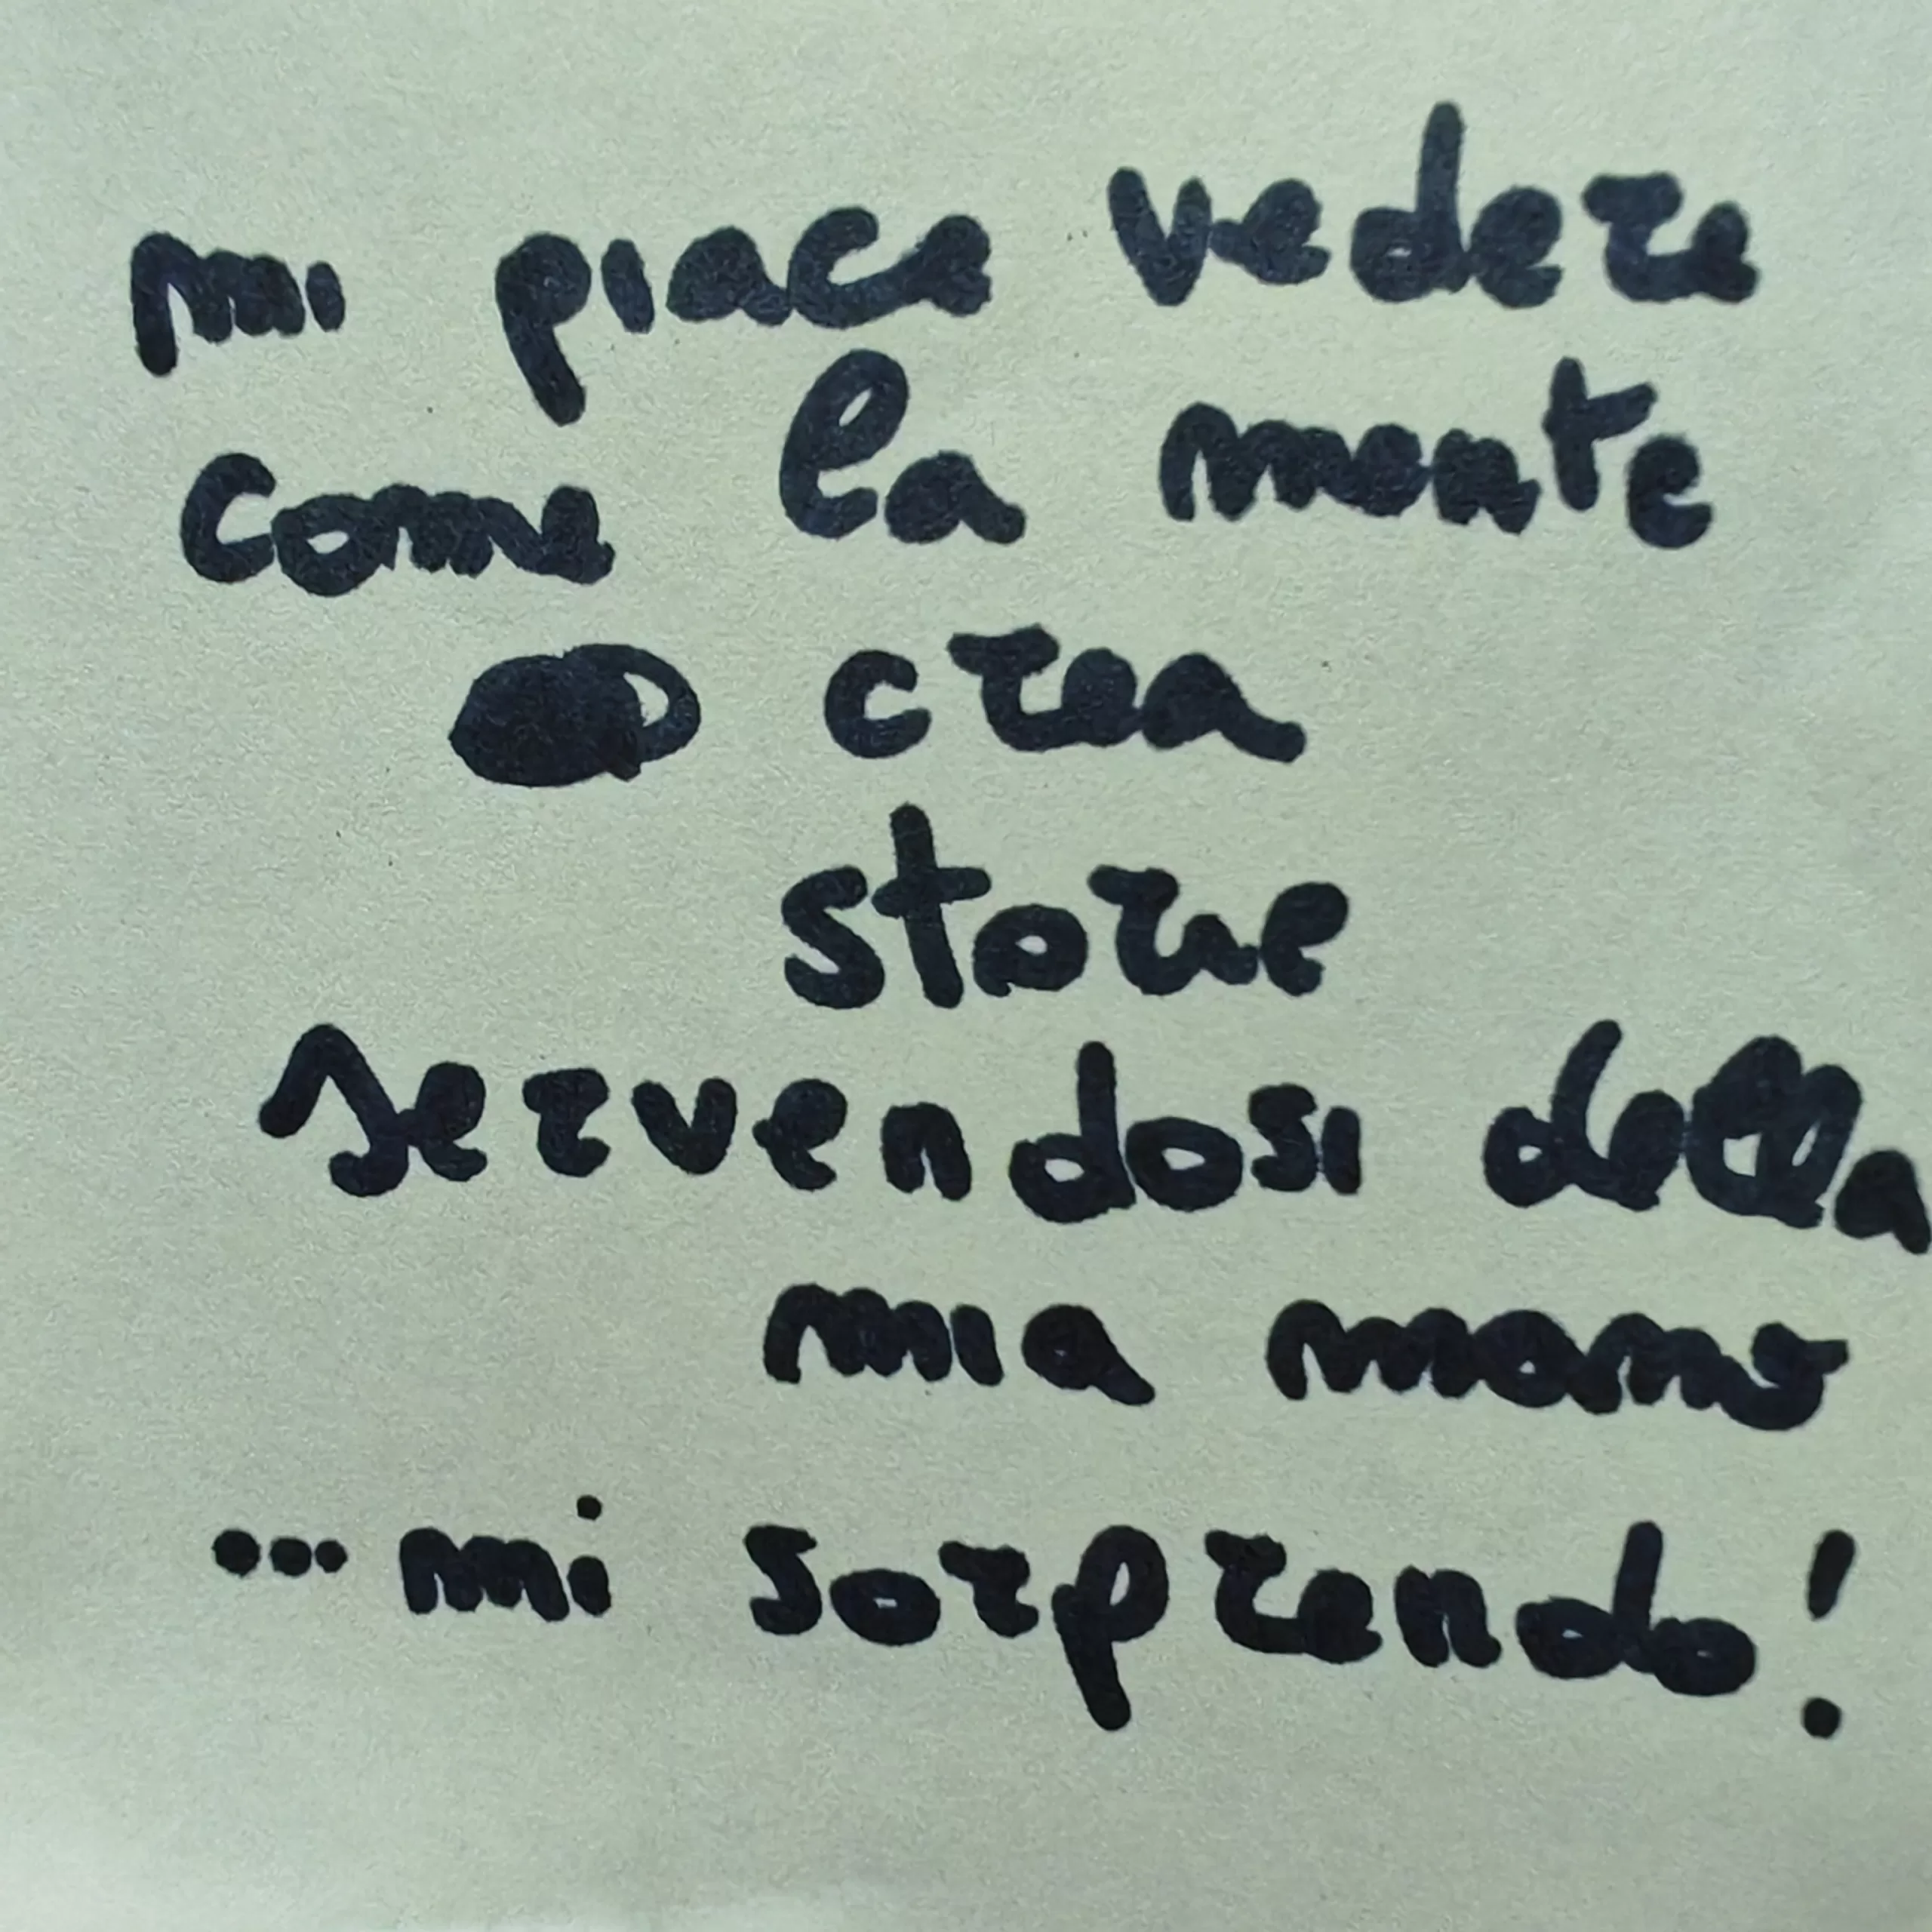 mi piace vedere
come la mente
crea
storie
servendosi della
mia mano
... mi sorprendo!